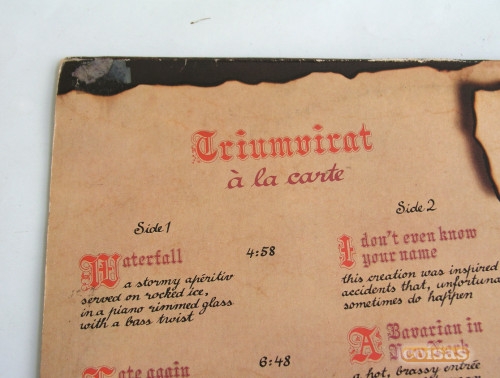 Triumvirat
à la carte
Side 1
Waterfall 4:58
a stormy apéritiv
served on rocked ice,
in a piano rimmed glass
with a bass twist
Late again 6:48
Side 2
I don't even know
your name
this creation was inspired
accidents that, unfortuna
sometimes do happen
A Bavarian in
New York
a hot, brassy entrée
coisas